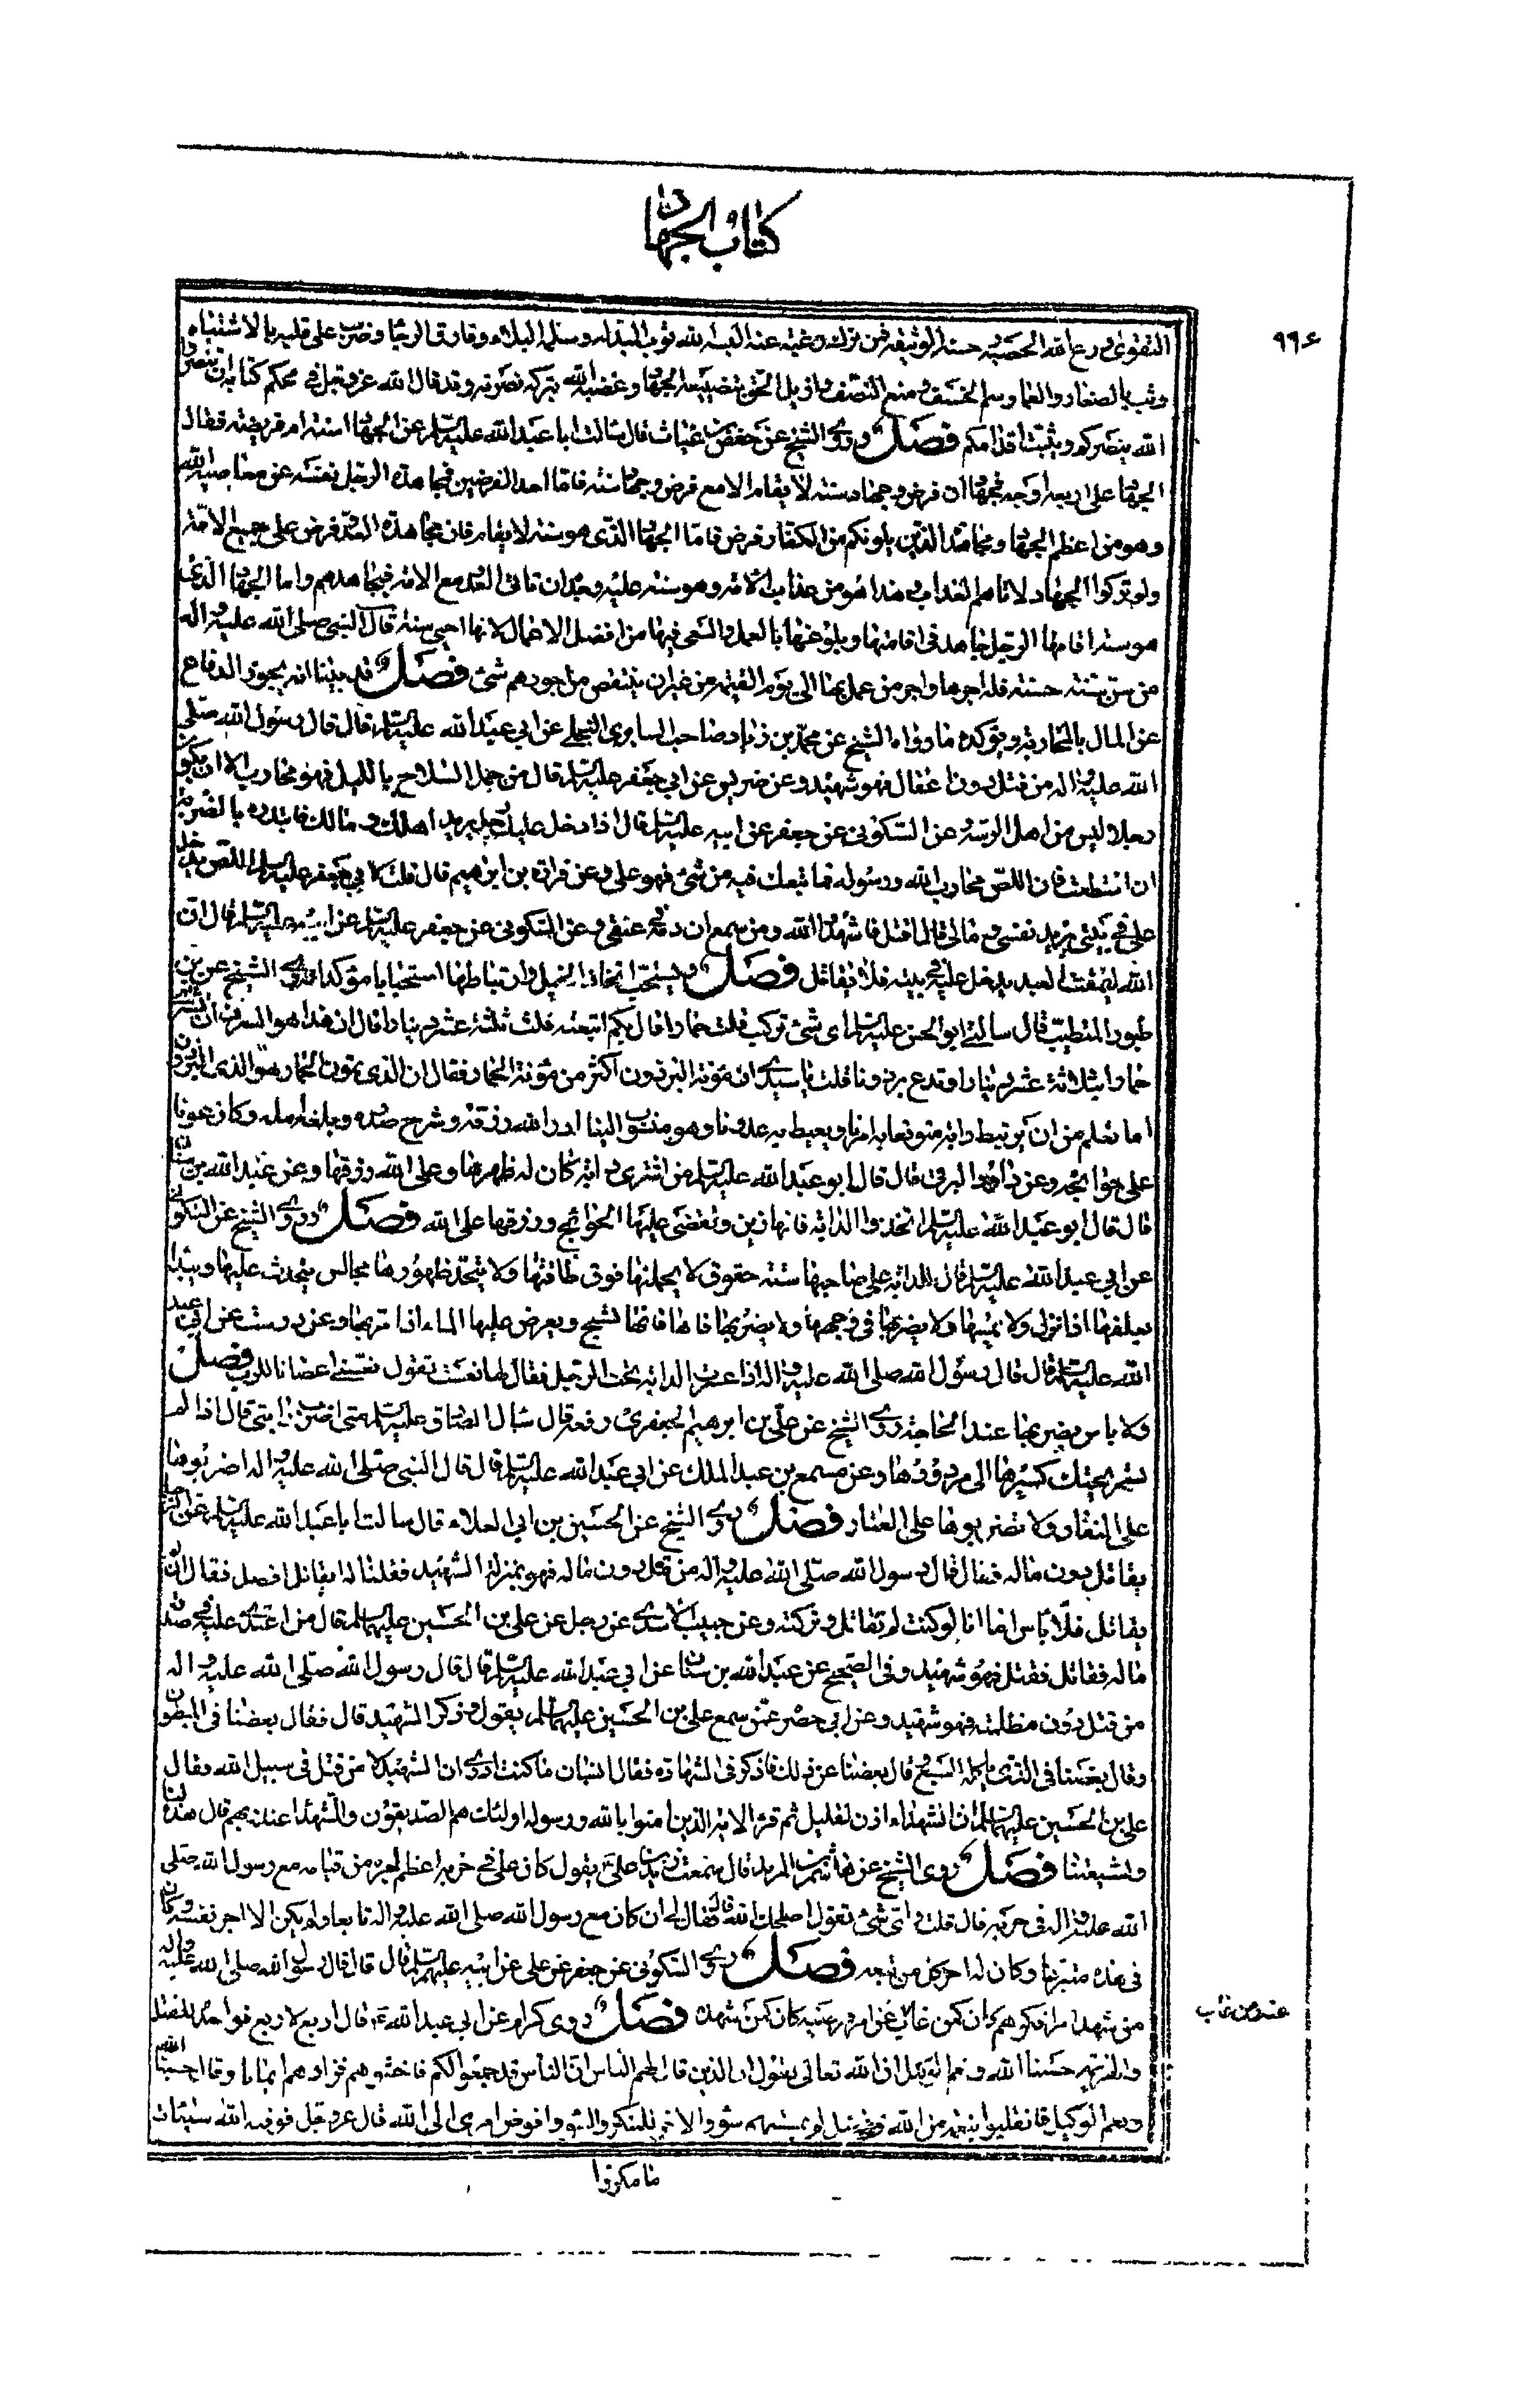 كتاب الجهاد
٩٩٤
التقوى ودرع الله الحصينة وجنته الوثيقة فمن تركه رغبة عنه البسه الله ثوب المذلة وشمله البلاء وفارق الرخا وضرب على قلبه بالاشتباه
وديث بالصغار والقما وسيم الخسف ومنع النصف واديل الحق بتضييعه الجهاد وغضب الله بتركه نصرته وقد قال الله عز وجل في محكم كتابه ان تنصروا
الله ينصركم ويثبت اقدامكم فصل وروى الشيخ عن حفص بن غياث قال سالت ابا عبد الله عليه السلم عن الجهاد اسنة ام فريضة فقال
الجهاد على اربعة اوجه فجهادان فرض وجهاد سنة لا يقام الا مع فرض وجهاد سنة فاما احد الفرضين فمجاهدة الرجل نفسه عن معاصى الله
وهو من اعظم الجهاد ومجاهدة الذين يلونكم من الكفار فرض فاما الجهاد الذى هو سنة لا يقام فان مجاهدة العدو فرض على جميع الامة
ولو تركوا الجهاد لاتاهم العذاب وهذا هو من عذاب الامة وهو سنة عليه وحده ان ياتى العدو مع الامة فيجاهدهم واما الجهاد الذى
هو سنة اقامها الرجل وجاهد فى اقامتها وبلوغها بالعمل والسعى فيها من افضل الاعمال لانها احيى سنة قال النبى صلى الله عليه واله
من سن سنة حسنة فله اجرها واجر من عمل بها الى يوم القيمة من غير ان ينتقص من اجورهم شئ فصل قد بينا انه يجوز الدفاع
عن المال بالمحاربة ويوكده ما رواه الشيخ عن محمد بن زياد صاحب السابرى البجلى عن ابى عبد الله عليه السلم قال قال رسول الله صلى
الله عليه واله من قتل دون عقال فهو شهيد وعن ضريس عن ابى جعفر عليه السلم قال من حمل السلاح بالليل فهو محارب الا ان يكون
رجلا ليس من اهل الريبة وعن السكونى عن جعفر عن ابيه عليه السلم قال اذا دخل عليك رجل يريد اهلك ومالك فابدره بالضربة
ان استطعت فان اللص محارب لله ورسوله فما تبعك فيه من شئ فهو على وعن فزارة بن ابرهيم قال قلت لابى جعفر عليه السلم اللص يدخل
على فى بيتى يريد نفسى ومالى قال اقتل فاشهد الله ومن سمع ان دمه فى عنقى وعن السكونى عن جعفر عليه السلم عن ابيه عليه السلم قال ان
الله ليمقت العبد يدخل عليه فى بيته فلا يقاتل فصل ويستحب اتخاذ الخيل وارتباطها استحبابا مؤكدا روى الشيخ عن بن
طيفور المتطبب قال سالنى ابو الحسن عليه السلم اى شئ تركب قلت حمارا قال بكم ابتعته قلت ثلثة عشر دينارا قال ان هذا هو السرف ان تشترى
حمارا بثلاثة عشر دينارا وتدع برذونا قلت يا سيدى ان مؤنة البرذون اكثر من مؤنة الحمار فقال ان الذى يمون الحمار هو الذى يمون البرذون
اما تعلم من ان يرتبط دابة متوقعا به امرنا ويغيط به عدونا وهو منسوب الينا ادر الله رزقه وشرح صدره وبلغه امله وكان عونا
على حوائجه وعن داود البرقى قال قال ابو عبد الله عليه السلم من اشترى دابة كان له ظهرها وعلى الله رزقها وعن عبد الله بن سنان
قال قال ابو عبد الله عليه السلم اتخذوا الدابة فانها زين وتقضى عليها الحوائج ورزقها على الله فصل وروى الشيخ عن السكونى
عن ابى عبد الله عليه السلم قال للدابة على صاحبها ستة حقوق لا يحملها فوق طاقتها ولا يتخذ ظهورها مجالس يتحدث عليها ويبدا
بعلفها اذا نزل ولا يسمها ولا يضربها فى وجهها ولا يضربها فانها تسبح ويعرض عليها الماء اذا مر بها وعن درست عن ابى عبد
الله عليه السلم قال قال رسول الله صلى الله عليه واله اذا عثرت الدابة تحت الرجل فقال لها تعست تقول تعس اعصانا للرب فصل
ولا باس بضربها عند الحاجة روى الشيخ عن على بن ابرهيم الجعفرى رفعه قال سال الصادق عليه السلم متى اضرب دابتى قال اذا لم
تسر تحتك كسيرها الى مزودها وعن مسمع بن عبد الملك عن ابى عبد الله عليه السلم قال قال النبى صلى الله عليه واله اضربوها
على النفار ولا تضربوها على العثار فصل روى الشيخ عن الحسين بن ابى العلاء قال سالت ابا عبد الله عليه السلم عن الرجل
يقاتل دون ماله فقال قال رسول الله صلى الله عليه واله من قتل دون ماله فهو بمنزلة الشهيد فقلنا له ايقاتل افضل فقال ان لم
يقاتل فلا باس اما انا لو كنت لم اقاتل وتركته وعن حبيب الاسدى عن رجل عن على بن الحسين عليهما السلم قال من اعتدى عليه فى صدقة
ماله فقاتل فقتل فهو شهيد وفى الصحيح عن عبد الله بن سنان عن ابى عبد الله عليه السلم قال قال رسول الله صلى الله عليه واله
من قتل دون مظلمته فهو شهيد وعن ابى عمن سمع على بن الحسين عليهما السلم يقول وذكر الشهيد قال فقال بعضنا فى المبطون
وقال بعضنا فى الذى ياكله السبع وقال بعضنا عن ذلك مما ذكر فى الشهادة فقال انسان ما كنت ادرى ان الشهيد الا من قتل فى سبيل الله فقال
على بن الحسين عليهما السلم ان الشهداء اذن لقليل ثم قرا الاية الذين امنوا بالله ورسوله اولئك هم الصديقون والشهدا عند ربهم قال هذه لنا
ولشيعتنا فصل روى الشيخ عن هاشم بن البريد قال سمعت زيد بن على يقول كان على فى حربه اعظم اجرا من قيامه مع رسول الله صلى
الله عليه واله فى حربه قال قلت واى شئ تقول اصلحك الله قال فقال لى ان كان مع رسول الله صلى الله عليه واله تابعا ولم يكن الا اجر نفسه وكان
فى هذه متبوعا وكان له اجر كل من تبعه فصل روى السكونى عن جعفر عن على عن ابيه عليهم السلم قال قال رسول الله صلى الله عليه واله
من شهد امرا فكرهه كان كمن غاب عن امر ورضيه كان كمن شهده فصل روى كرام عن ابى عبد الله ع قال اربع لاربع فواحدة للقتل
والهزيمة حسبنا الله ونعم الوكيل ان الله تعالى يقول الذين قال لهم الناس ان الناس قد جمعوا لكم فاخشوهم فزادهم ايمانا وقالوا حسبنا الله
ونعم الوكيل فانقلبوا بنعمة من الله وفضل لم يمسسهم سوء والاخرى للمكر والسوء وافوض امرى الى الله قال عز وجل فوقيه الله سيئات
عنه ومن غاب
ما مكروا